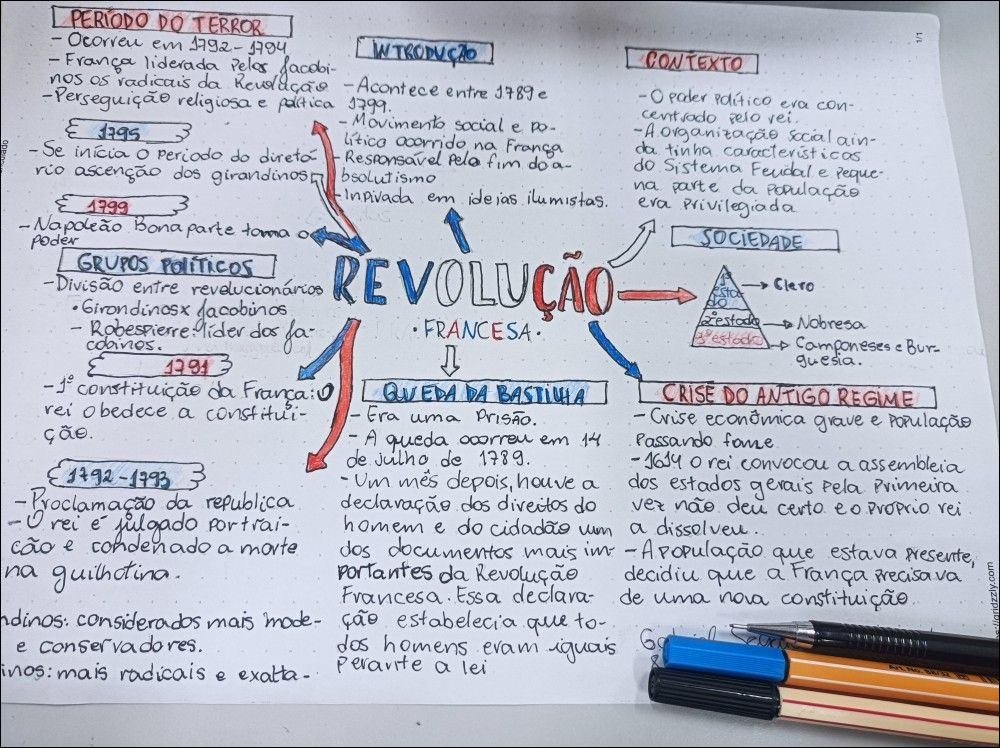 PERÍODO DO TERROR
- Ocorreu em 1792-1794
- França liderada pelos Jacobi-
nos os radicais da Revolução
- Perseguição religiosa e política
1795
- Se inicia o período do diretó
rio ascenção dos girandinos
1799
- Napoleão Bonaparte toma o
poder
GRUPOS POLÍTICOS
- Divisão entre revolucionários
• Girondinos x Jacobinos
- Robespierre: líder dos ja-
cobinos.
1791
- 1º constituição da França: O
rei obedece a constitui-
ção.
1792-1793
- Proclamação da republica
- O rei é julgado por trai-
ção e condenado a morte
na guilhotina.
ndinos: considerados mais mode-
e conservadores.
inos: mais radicais e exalta-
INTRODUÇÃO
- Acontece entre 1789 e
1799.
- Movimento social e po-
lítico ocorrido na França
- Responsável pelo fim do a-
bsolutismo
- Inpivada em ideias ilumistas.
REVOLUÇÃO
• FRANCESA •
QUEDA DA BASTILHA
- Era uma Prisão.
- A queda ocorreu em 14
de julho de 1789.
- Um mês depois, houve a
declaração dos direitos do
homem e do cidadão um
dos documentos mais im-
portantes da Revolução
Francesa. Essa declara-
ção estabelecia que to-
dos homens eram iguais
perante a lei
1/1
CONTEXTO
- O poder político era con-
centrado pelo rei.
- A organização social ain-
da tinha características
do Sistema Feudal e peque-
na parte da população
era privilegiada
SOCIEDADE
1º
estado
Clero
2º estado
Nobresa
3º estado
Camponeses e Bur-
guesia.
CRISE DO ANTIGO REGIME
- Crise econômica grave e população
passando fome
- 1614 o rei convocou a assembleia
dos estados gerais pela primeira
vez não deu certo e o próprio rei
a dissolveu.
- A população que estava presente,
decidiu que a França precisava
de uma nova constituição
gridzzly.com
Art. No. 88/32